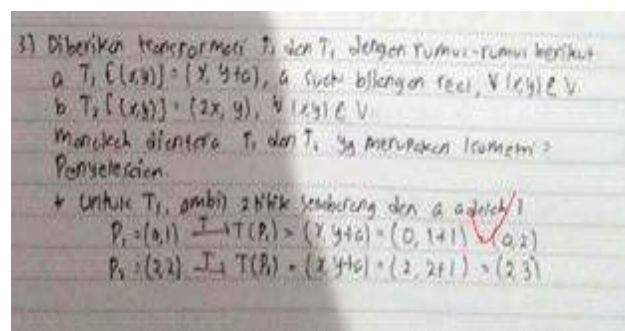 3) Diberikan transformasi T₁ dan T₂ dengan rumus-rumus berikut
a T₁[(x,y)] = (x, y+a), a suatu bilangan reel, ∀ (x,y) ∈ V
b T₂[(x,y)] = (2x, y), ∀ (x,y) ∈ V
Manakah diantara T₁ dan T₂ yg merupakan isometri ?
Penyelesaian.
* Untuk T₁, ambil 2 titik sembarang dan a adalah 1
P₁ = (0,1) T→ T(P₁) = (x, y+a) = (0, 1+1) = (0,2)
P₂ = (2,2) T→ T(P₂) = (x, y+a) = (2, 2+1) = (2,3)